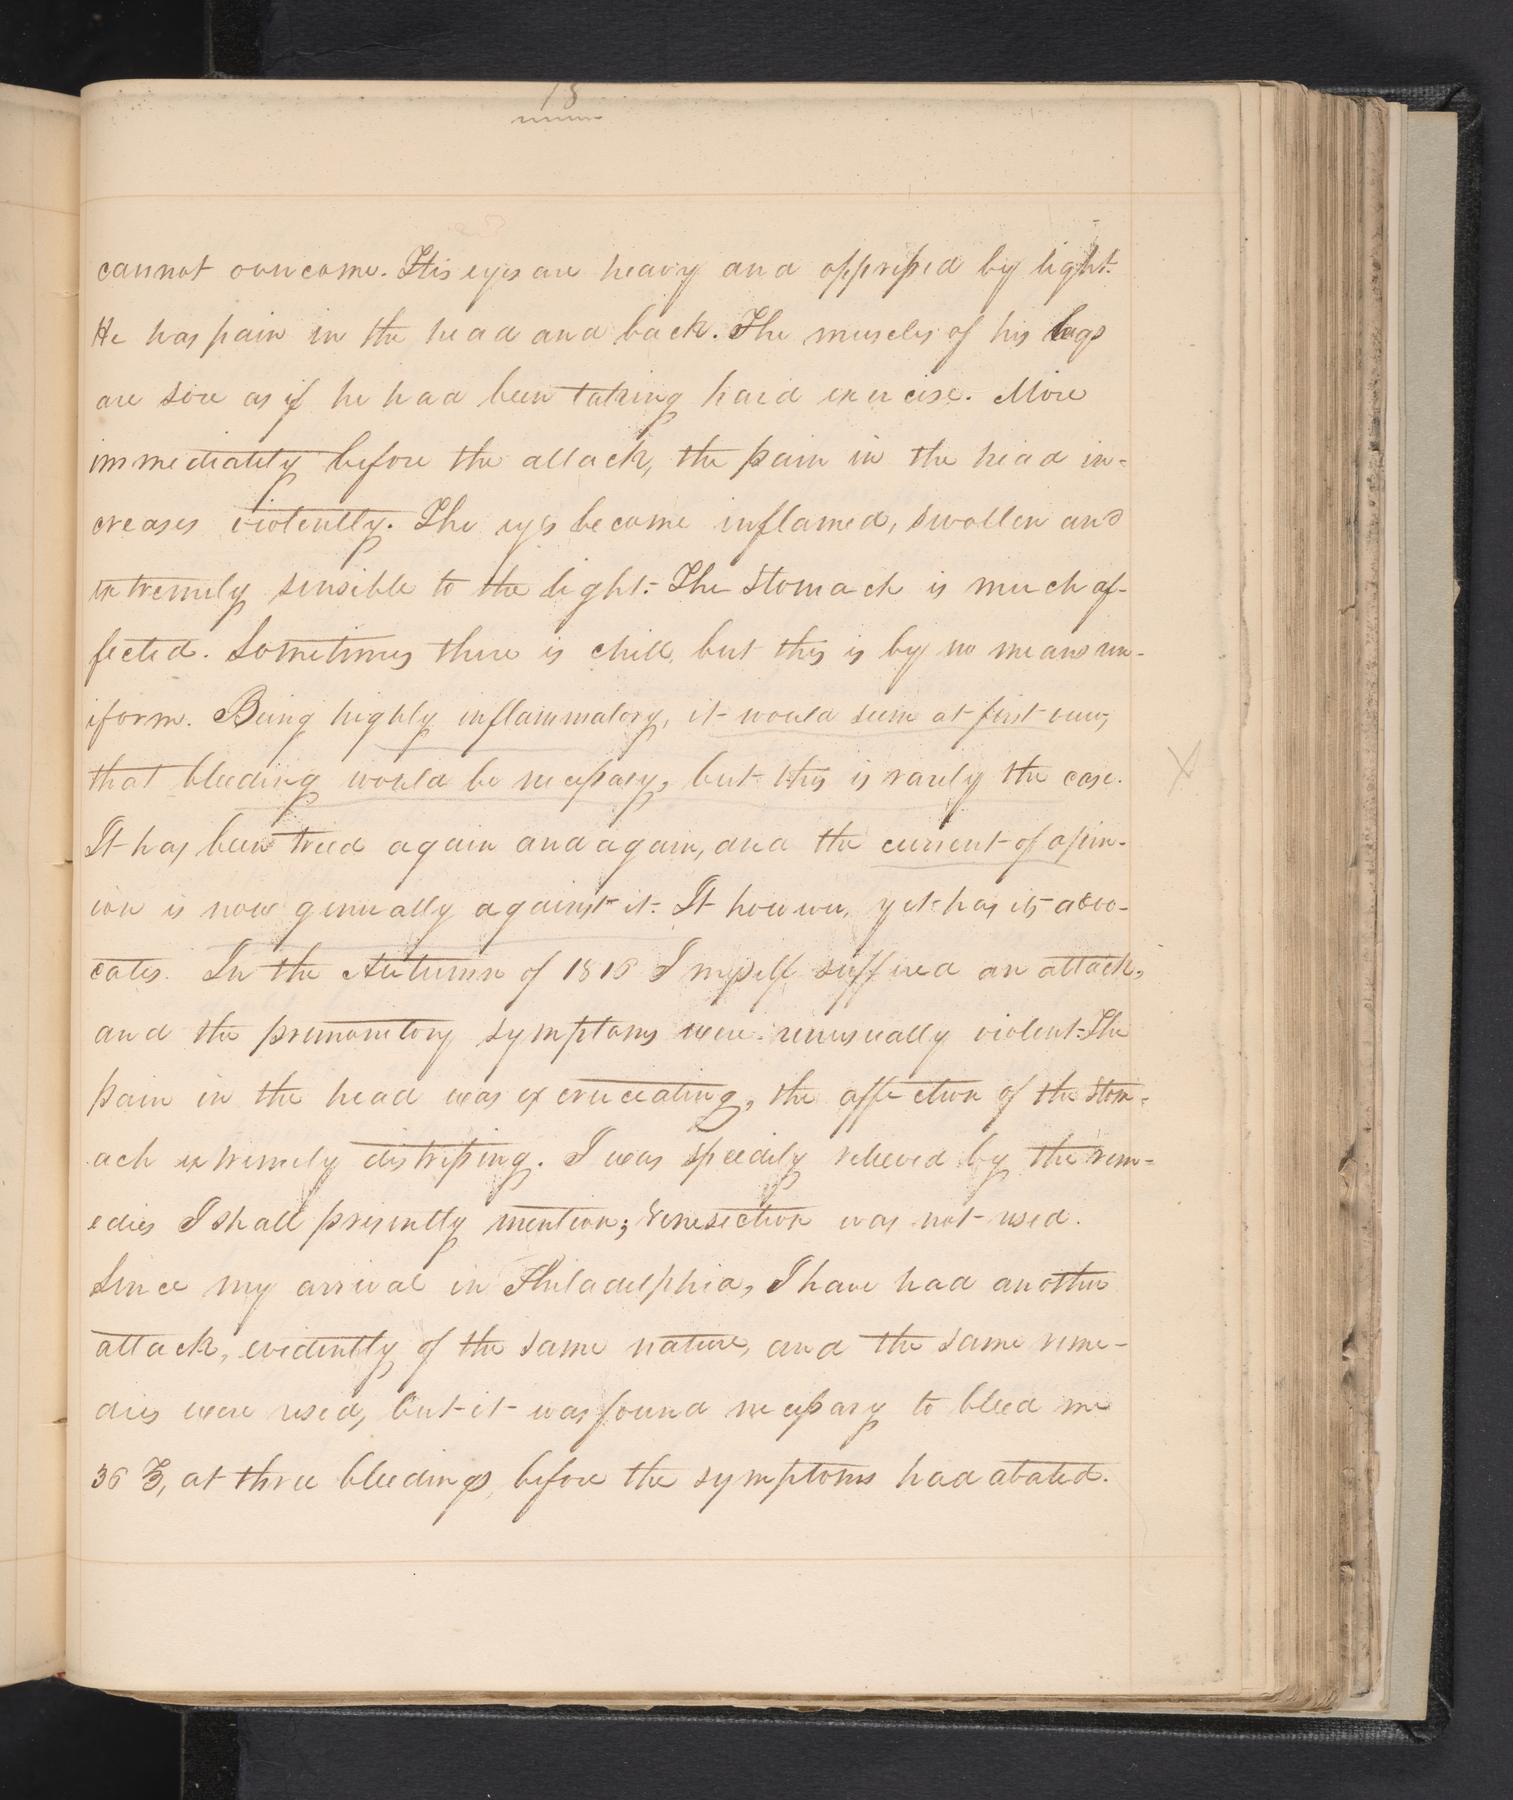 13
cannot overcome. His eyes are heavy and oppressed by light.
He has pain in the head and back. The muscles of his legs
are sore as if he had been taking hard exercise. More
immediately before the attack, the pain in the head in-
creases violently. The eyes become inflamed, swollen and
extremely sensible to the light. The stomach is much af-
fected. Sometimes there is chill, but this is by no means un-
iform. Being highly inflammatory, it would seem at first view,
that bleeding would be necessary, but this is rarely the case.
It has been tried again and again, and the current of opin-
ion is now generally against it. It however, yet has its advo-
cates. In the Autumn of 1816 I myself suffered an attack,
and the premonitory symptoms were unusually violent. The
pain in the head was excruceating, the affection of the stom-
ach extremely distressing. I was speedily relieved by the rem-
edies I shall presently mention; Venesection was not used.
Since my arrival in Philadelphia, I have had another
attack, evidently of the same nature, and the same reme-
dies were used, but it was found necessary to bleed me
36 ℥, at three bleedings, before the symptoms had abated.